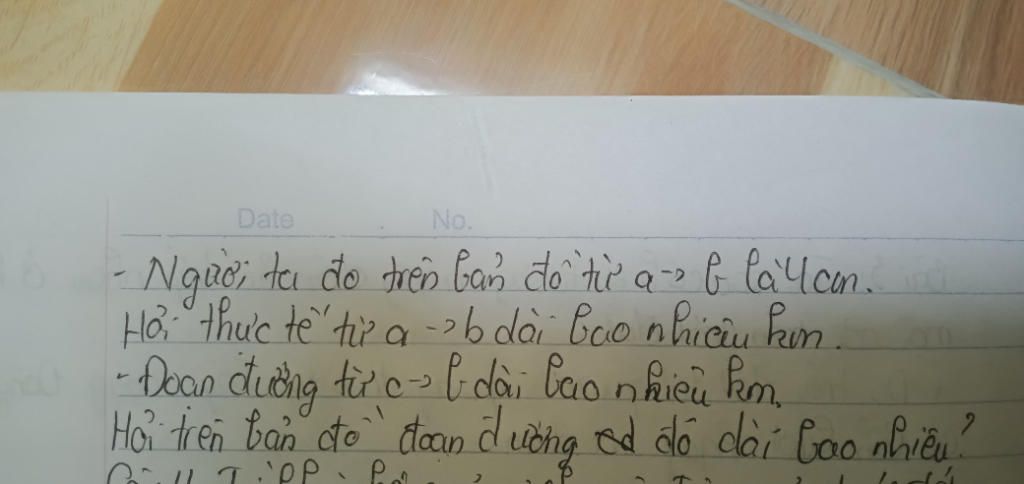 Date No.
- Người ta đo trên bản đồ từ a -> b là 4 cm.
Hỏi thực tế từ a -> b dài bao nhiêu km.
- Đoạn đường từ c -> b dài bao nhiêu km.
Hỏi trên bản đồ đoạn đường cd đó dài bao nhiêu?